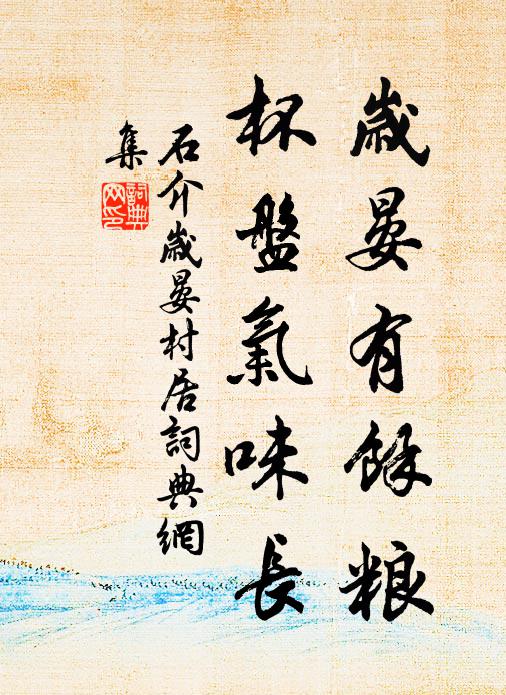 歲晏有餘粮
杯盤氣味長
石介歲晏村居詞典網
集
詞典網印